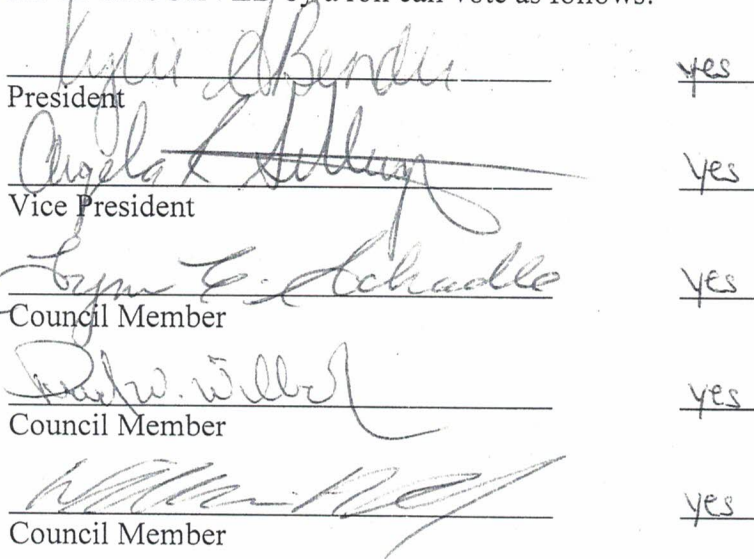 by a roll call vote as follows:
Kylie Bender yes
President
Angela K yes
Vice President
Lynn E. Schadle yes
Council Member
W. yes
Council Member
William yes
Council Member